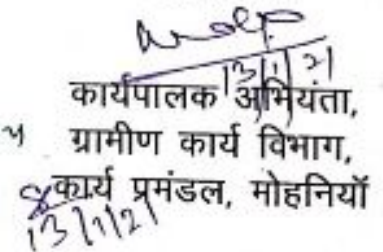 13/1/21
कार्यपालक अभियंता,
ग्रामीण कार्य विभाग,
कार्य प्रमंडल, मोहनियाँ
13/1/21